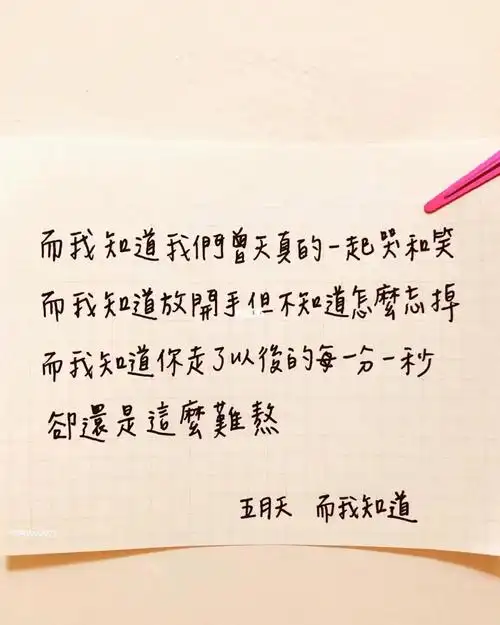 而我知道我們曾天真的一起哭和笑
而我知道放開手但不知道怎麼忘掉
而我知道你走了以後的每一分一秒
卻還是這麼難熬
五月天 而我知道